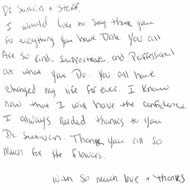 Dr Sumian + Staff,
I would like to say thank you
for everything you have Done. You all
Are so kind, Supportave, and Proffessional
at what you Do. You all have
changed my life for ever. I know
now that I will have the confidence
I always needed thanks to you
Dr. Sumian. Thank you all so
much for the flowers.
With so much love + thanks